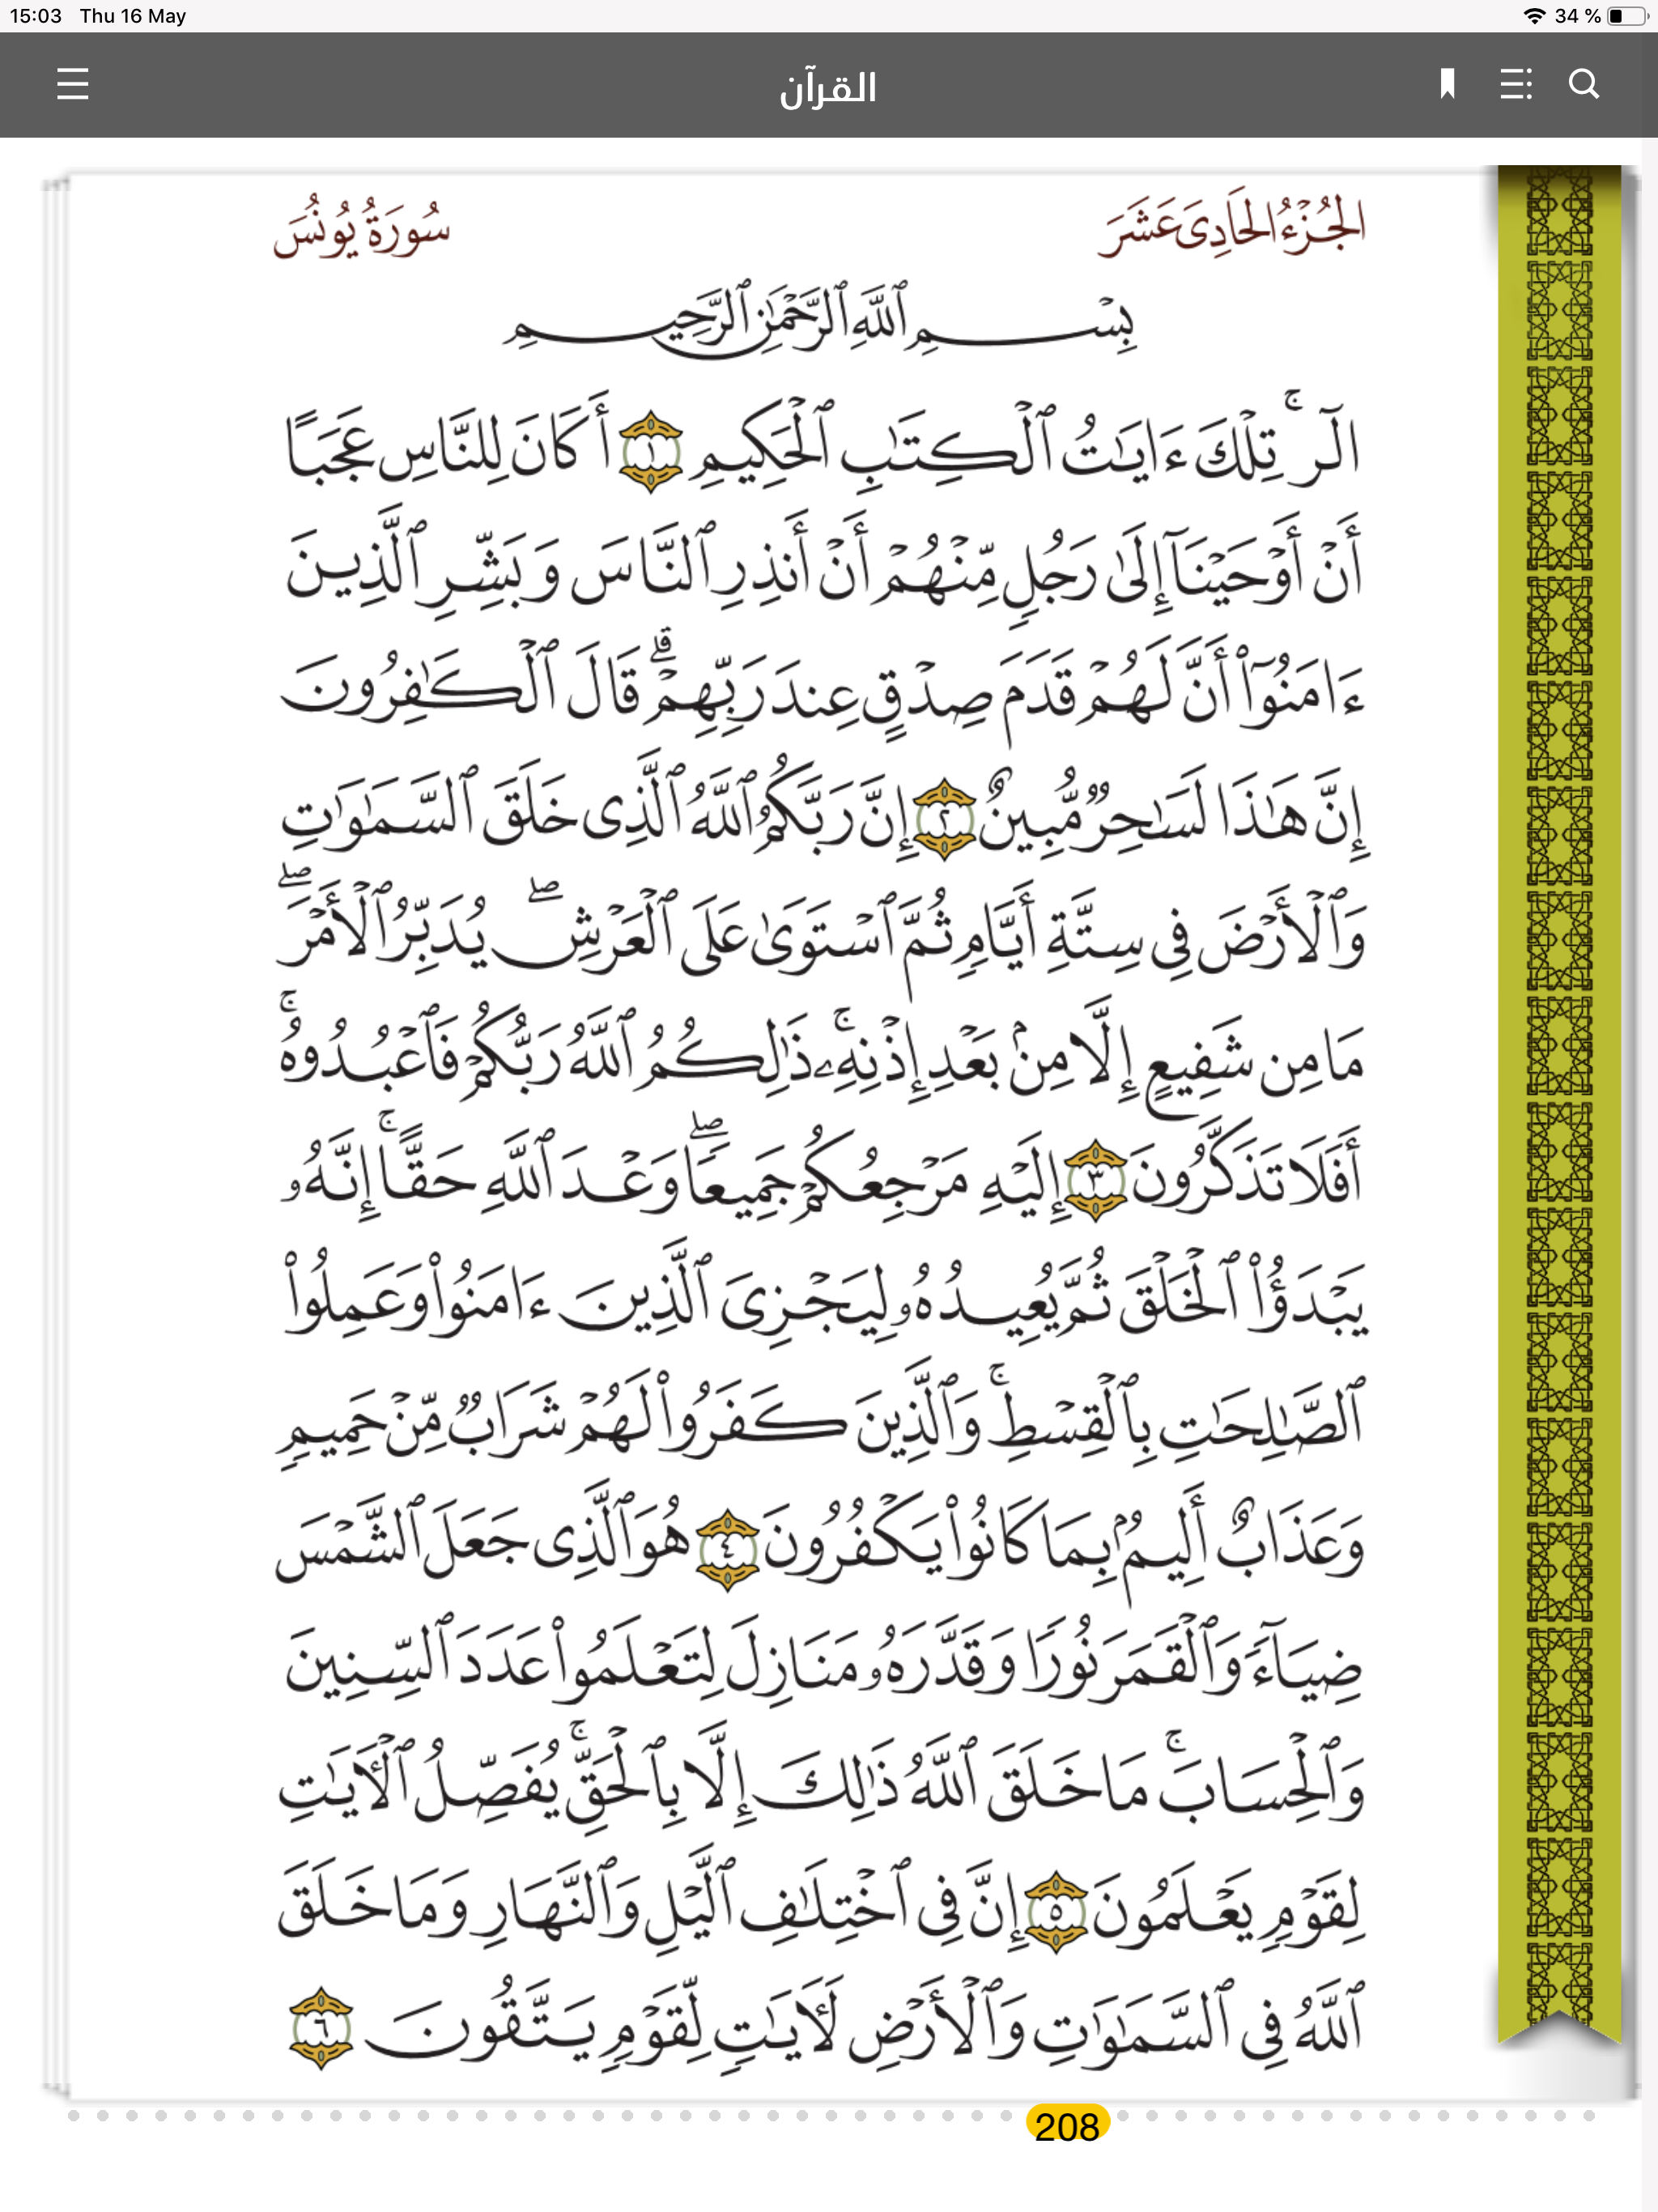 15:03 Thu 16 May 34 %
القرآن
الجُزْءُ الحَادِى عَشَرَ سُورَةُ يُونُسَ
بِسْمِ ٱللَّهِ ٱلرَّحْمَٰنِ ٱلرَّحِيمِ
الٓر ۚ تِلْكَ ءَايَٰتُ ٱلْكِتَٰبِ ٱلْحَكِيمِ ١ أَكَانَ لِلنَّاسِ عَجَبًا
أَنْ أَوْحَيْنَآ إِلَىٰ رَجُلٍ مِّنْهُمْ أَنْ أَنذِرِ ٱلنَّاسَ وَبَشِّرِ ٱلَّذِينَ
ءَامَنُوٓا۟ أَنَّ لَهُمْ قَدَمَ صِدْقٍ عِندَ رَبِّهِمْ ۗ قَالَ ٱلْكَٰفِرُونَ
إِنَّ هَٰذَا لَسَٰحِرٌ مُّبِينٌ ٢ إِنَّ رَبَّكُمُ ٱللَّهُ ٱلَّذِى خَلَقَ ٱلسَّمَٰوَٰتِ
وَٱلْأَرْضَ فِى سِتَّةِ أَيَّامٍ ثُمَّ ٱسْتَوَىٰ عَلَى ٱلْعَرْشِ ۖ يُدَبِّرُ ٱلْأَمْرَ ۖ
مَا مِن شَفِيعٍ إِلَّا مِنۢ بَعْدِ إِذْنِهِۦ ۚ ذَٰلِكُمُ ٱللَّهُ رَبُّكُمْ فَٱعْبُدُوهُ ۚ
أَفَلَا تَذَكَّرُونَ ٣ إِلَيْهِ مَرْجِعُكُمْ جَمِيعًا ۖ وَعْدَ ٱللَّهِ حَقًّا ۚ إِنَّهُۥ
يَبْدَؤُا۟ ٱلْخَلْقَ ثُمَّ يُعِيدُهُۥ لِيَجْزِىَ ٱلَّذِينَ ءَامَنُوا۟ وَعَمِلُوا۟
ٱلصَّٰلِحَٰتِ بِٱلْقِسْطِ ۚ وَٱلَّذِينَ كَفَرُوا۟ لَهُمْ شَرَابٌ مِّنْ حَمِيمٍ
وَعَذَابٌ أَلِيمٌۢ بِمَا كَانُوا۟ يَكْفُرُونَ ٤ هُوَ ٱلَّذِى جَعَلَ ٱلشَّمْسَ
ضِيَآءً وَٱلْقَمَرَ نُورًا وَقَدَّرَهُۥ مَنَازِلَ لِتَعْلَمُوا۟ عَدَدَ ٱلسِّنِينَ
وَٱلْحِسَابَ ۚ مَا خَلَقَ ٱللَّهُ ذَٰلِكَ إِلَّا بِٱلْحَقِّ ۚ يُفَصِّلُ ٱلْءَايَٰتِ
لِقَوْمٍ يَعْلَمُونَ ٥ إِنَّ فِى ٱخْتِلَٰفِ ٱلَّيْلِ وَٱلنَّهَارِ وَمَا خَلَقَ
ٱللَّهُ فِى ٱلسَّمَٰوَٰتِ وَٱلْأَرْضِ لَءَايَٰتٍ لِّقَوْمٍ يَتَّقُونَ ٦
208